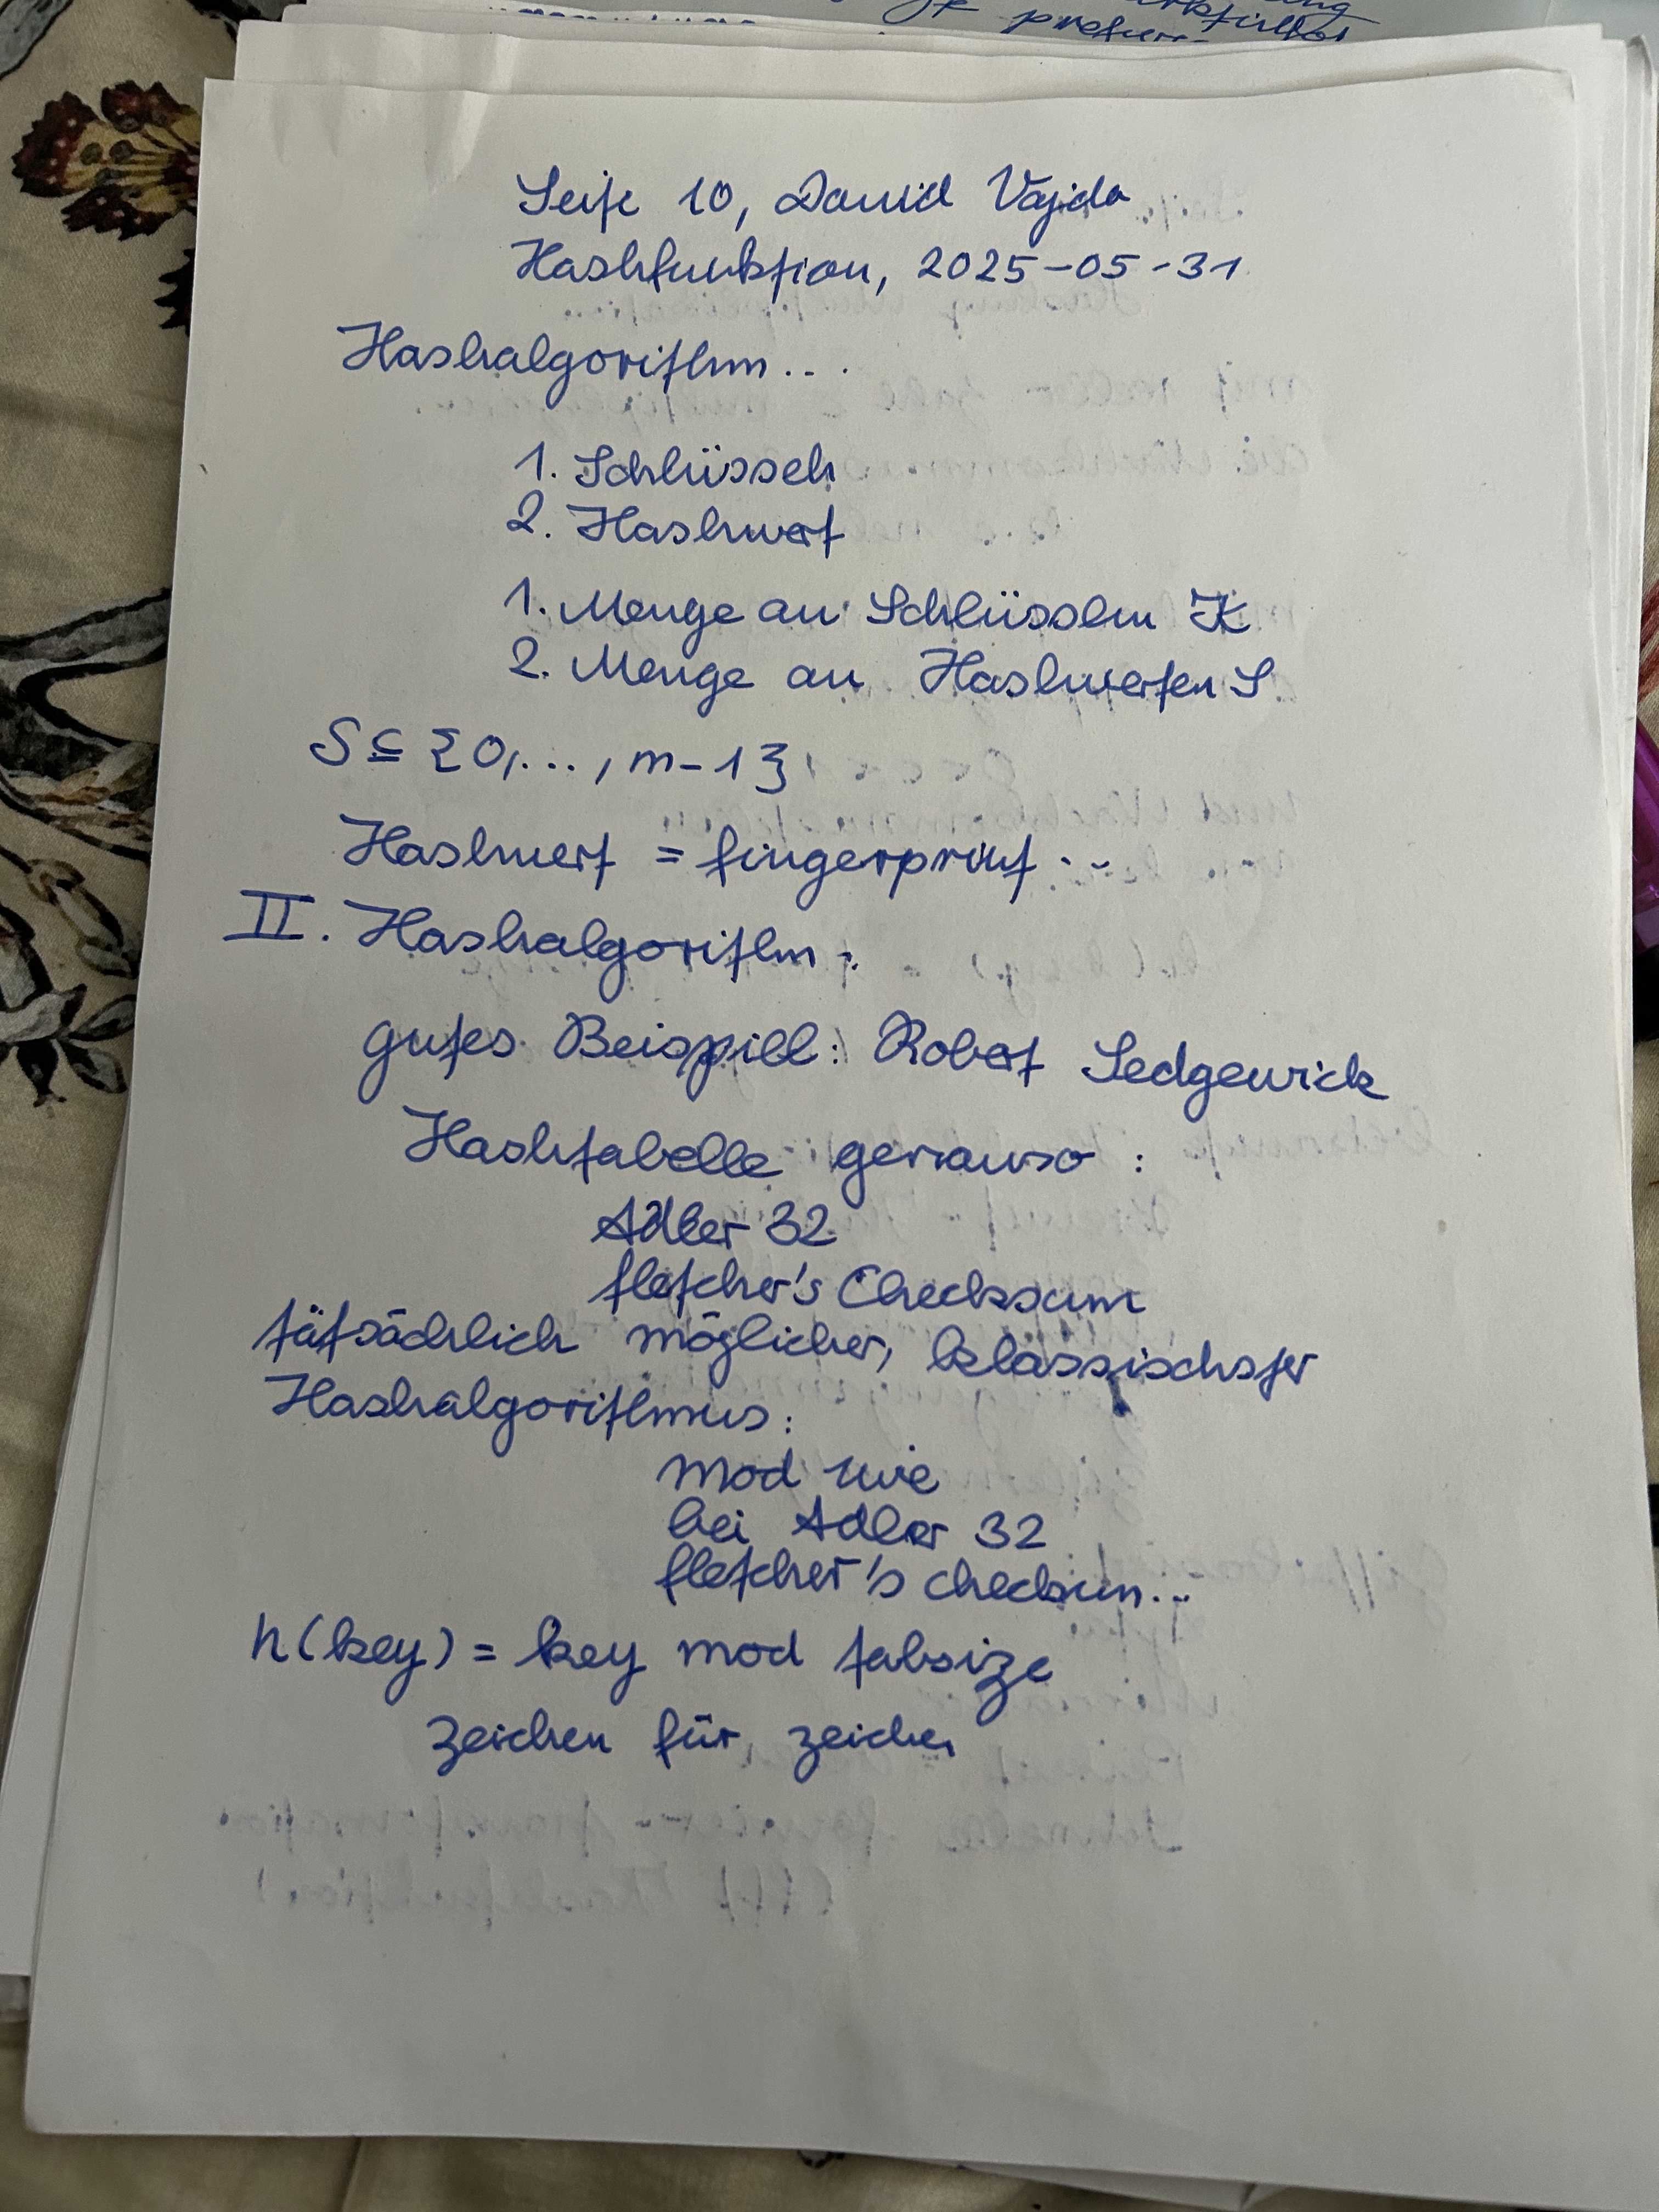 Seite 10, David Vajda
Hashfunktion, 2025-05-31
Hashalgorithm...
1. Schlüsseln
2. Hashwert
1. Menge an Schlüsseln K
2. Menge an Hashwerten S
S ⊆ {0,...,m-1}
Hashwert = fingerprint...
II. Hashalgorithm:
gutes Beispiell: Robert Sedgewick
Hashtabelle genauso:
Adler 32
fletcher's Checksum
tätsächlich möglicher, klassischster
Hashalgorithmus:
mod wie
bei Adler 32
fletcher's checksum...
h(key) = key mod tabsize
zeichen für zeichen